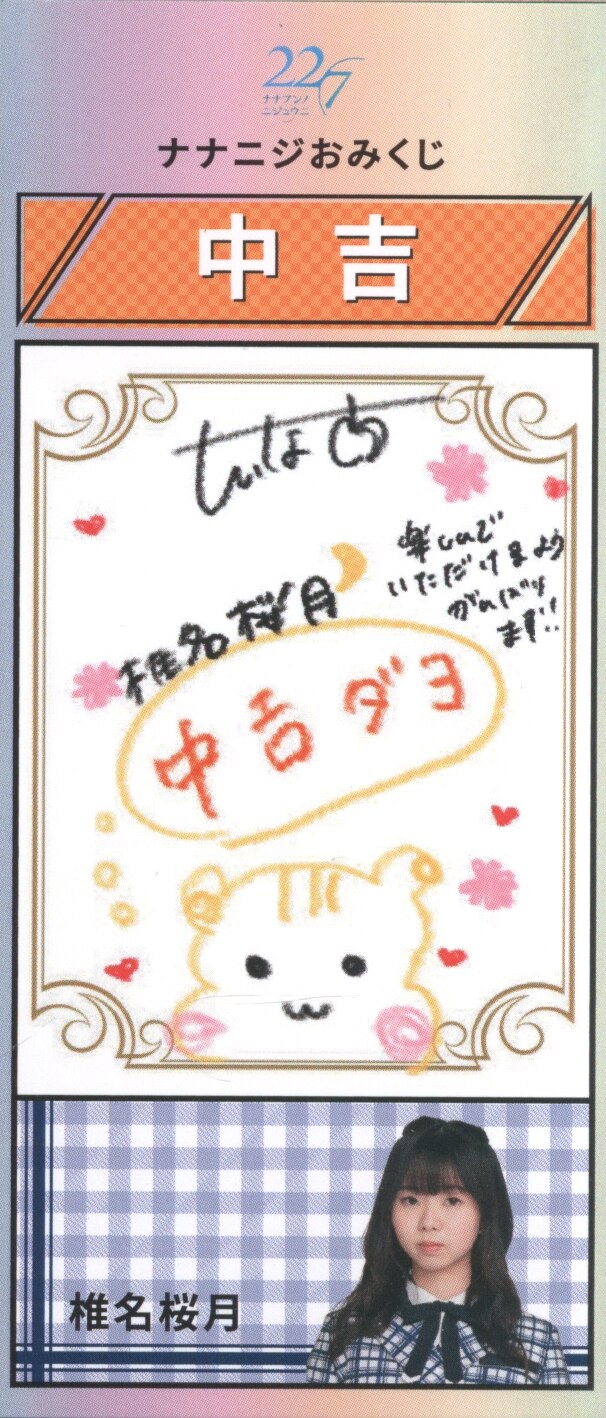 22/7
ナナブンノ
ニジュウニ
ナナニジおみくじ
中吉
楽しんで
いただけるよう
がんばり
ます!!
椎名桜月
中吉ダヨ
椎名桜月